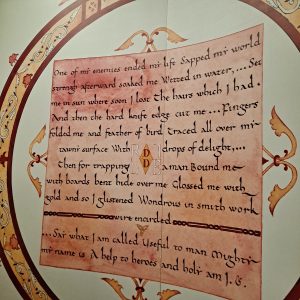 One of mi enemies ended mi life Sapped mi world
strengh afterward soaked me Wetted in water,.... Set
me in sun where soon I lost The hairs which I had.
And then the hard knife edge cut me.... Fingers
folded me and feather of bird Traced all over mi
tawni surface With drops of delight,...
Then for trapping a man Bound me
with boards bent hide over me Glossed me with
gold and so I glistened Wondrous in smith work
wire encircled
... Sai what I am called Useful to man Mighti
mi name is A help to heroes and holi am I.